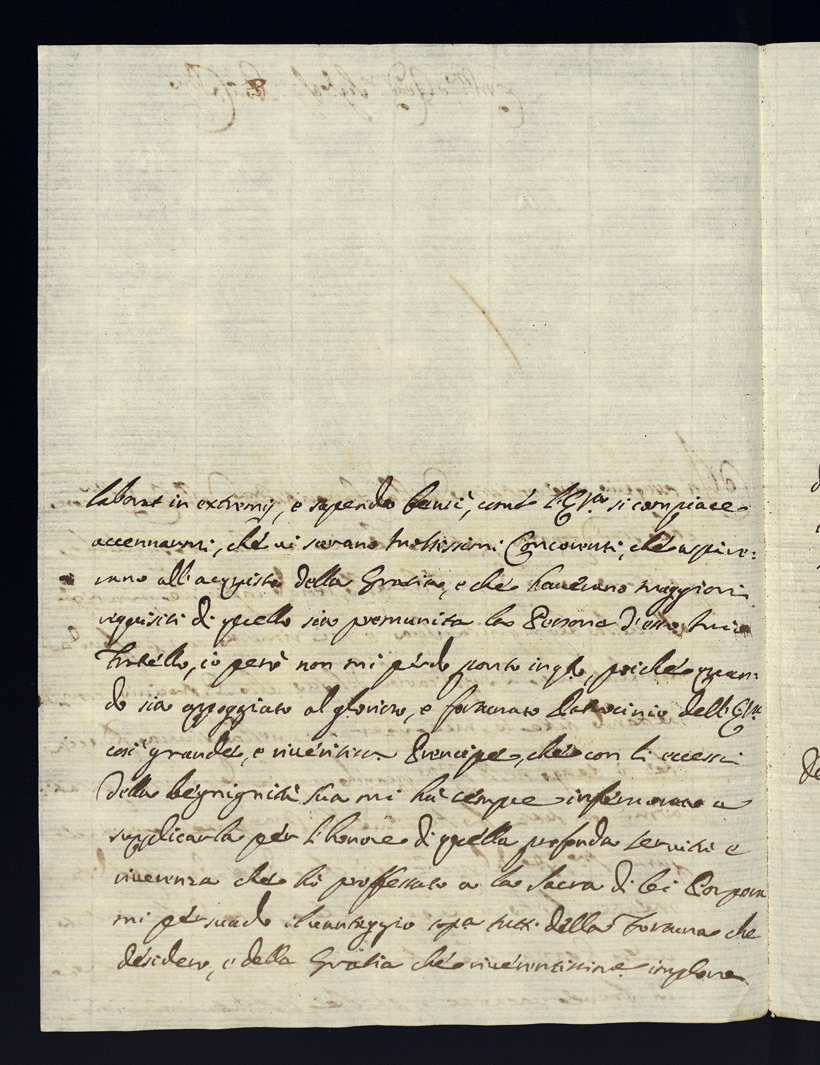 laborat in extremis, e sapendo benissº, come l'E.Vra si compiace
accennarmi, ché vi sarano moltissimi Concorenti, ché aspire:
rano all'acquisto della Gratia, e ché haverano maggiori
requisiti di quello sia premunita la Persona d'esso mio
Fratello, io però non mi perdo ponto poiché quan:
do sia appoggiato al glorioso, e fortunato Patrocinio dell'E.Vra
così grande, e riverito Prencipe, ché con li eccessi
della begnignità sua mi hà sempre a
suplicarla pér l'honore di quélla profonda servitù e
riverenza ché hò proffessato a la Sacra di lei Porpora
mi pérsuado il vantaggio sopra tutti délla Fortuna che
désidero, e della Gratia ché riverentissime imploro